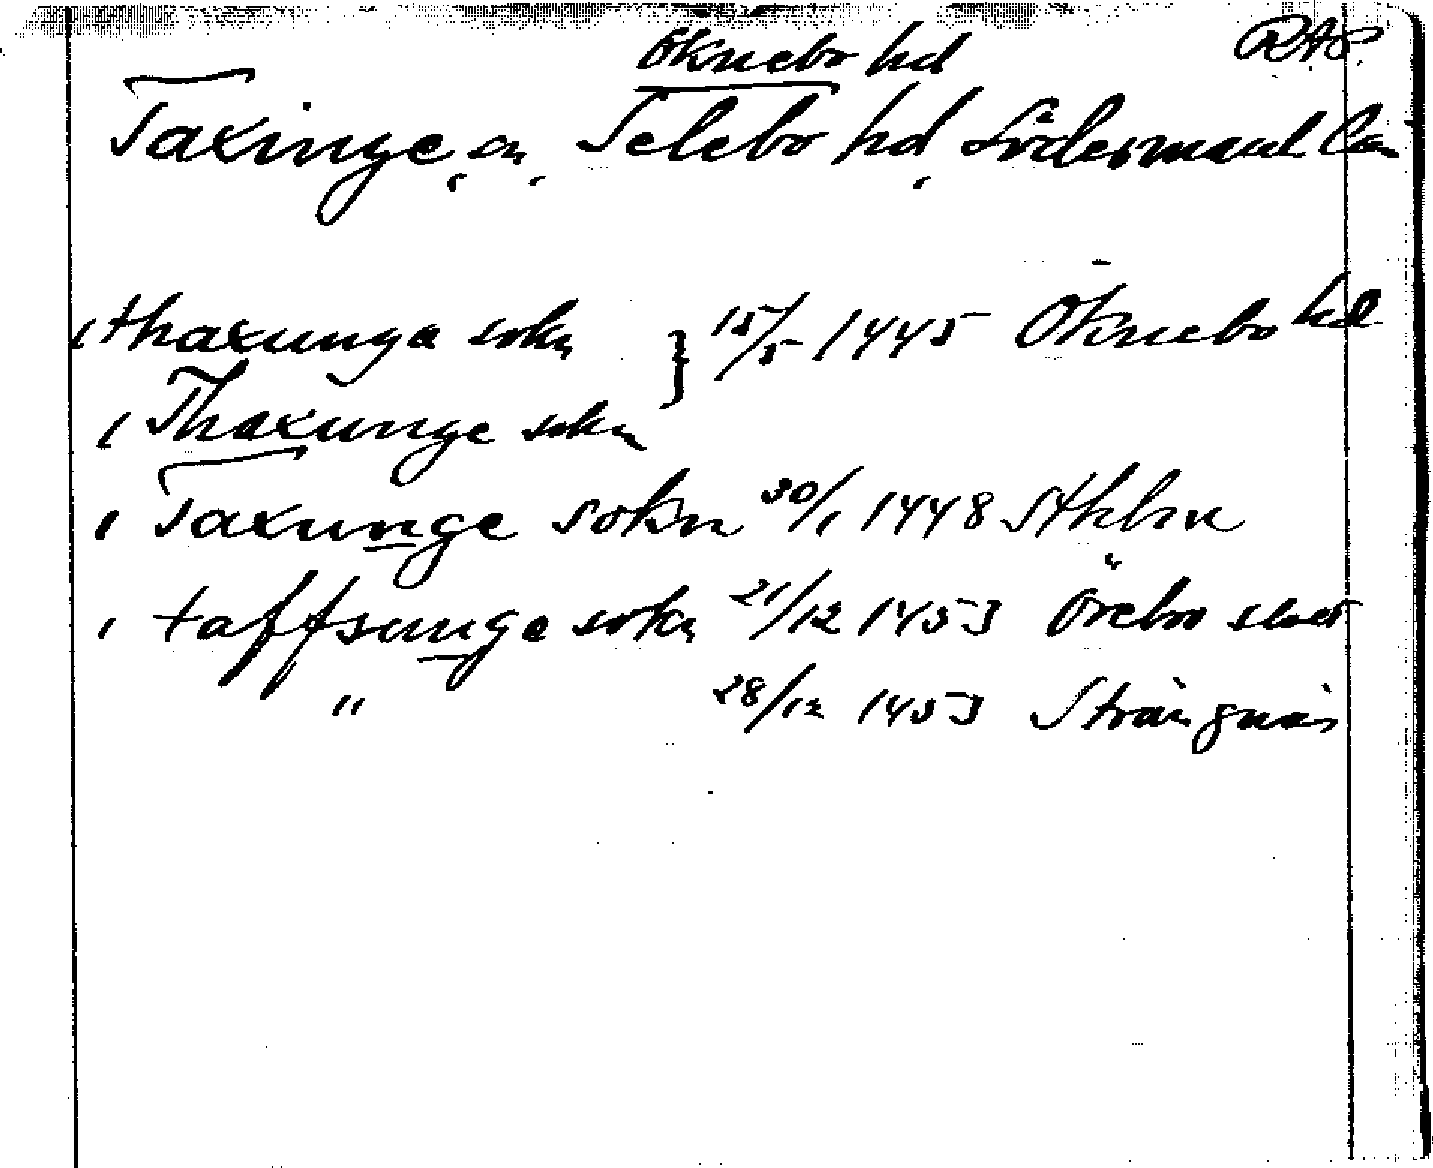 Öknebo hd RAP
Taxinge sn Selebo hd Södermanl. län
i thaxunga sokn } 15/5 1445 Öknebo hd
i Thaxunge sokn
i Taxunge sokn 30/1 1448 Sthlm
i taffsunge sokn 21/12 1453 Örebro slott
" 28/12 1453 Strängnäs